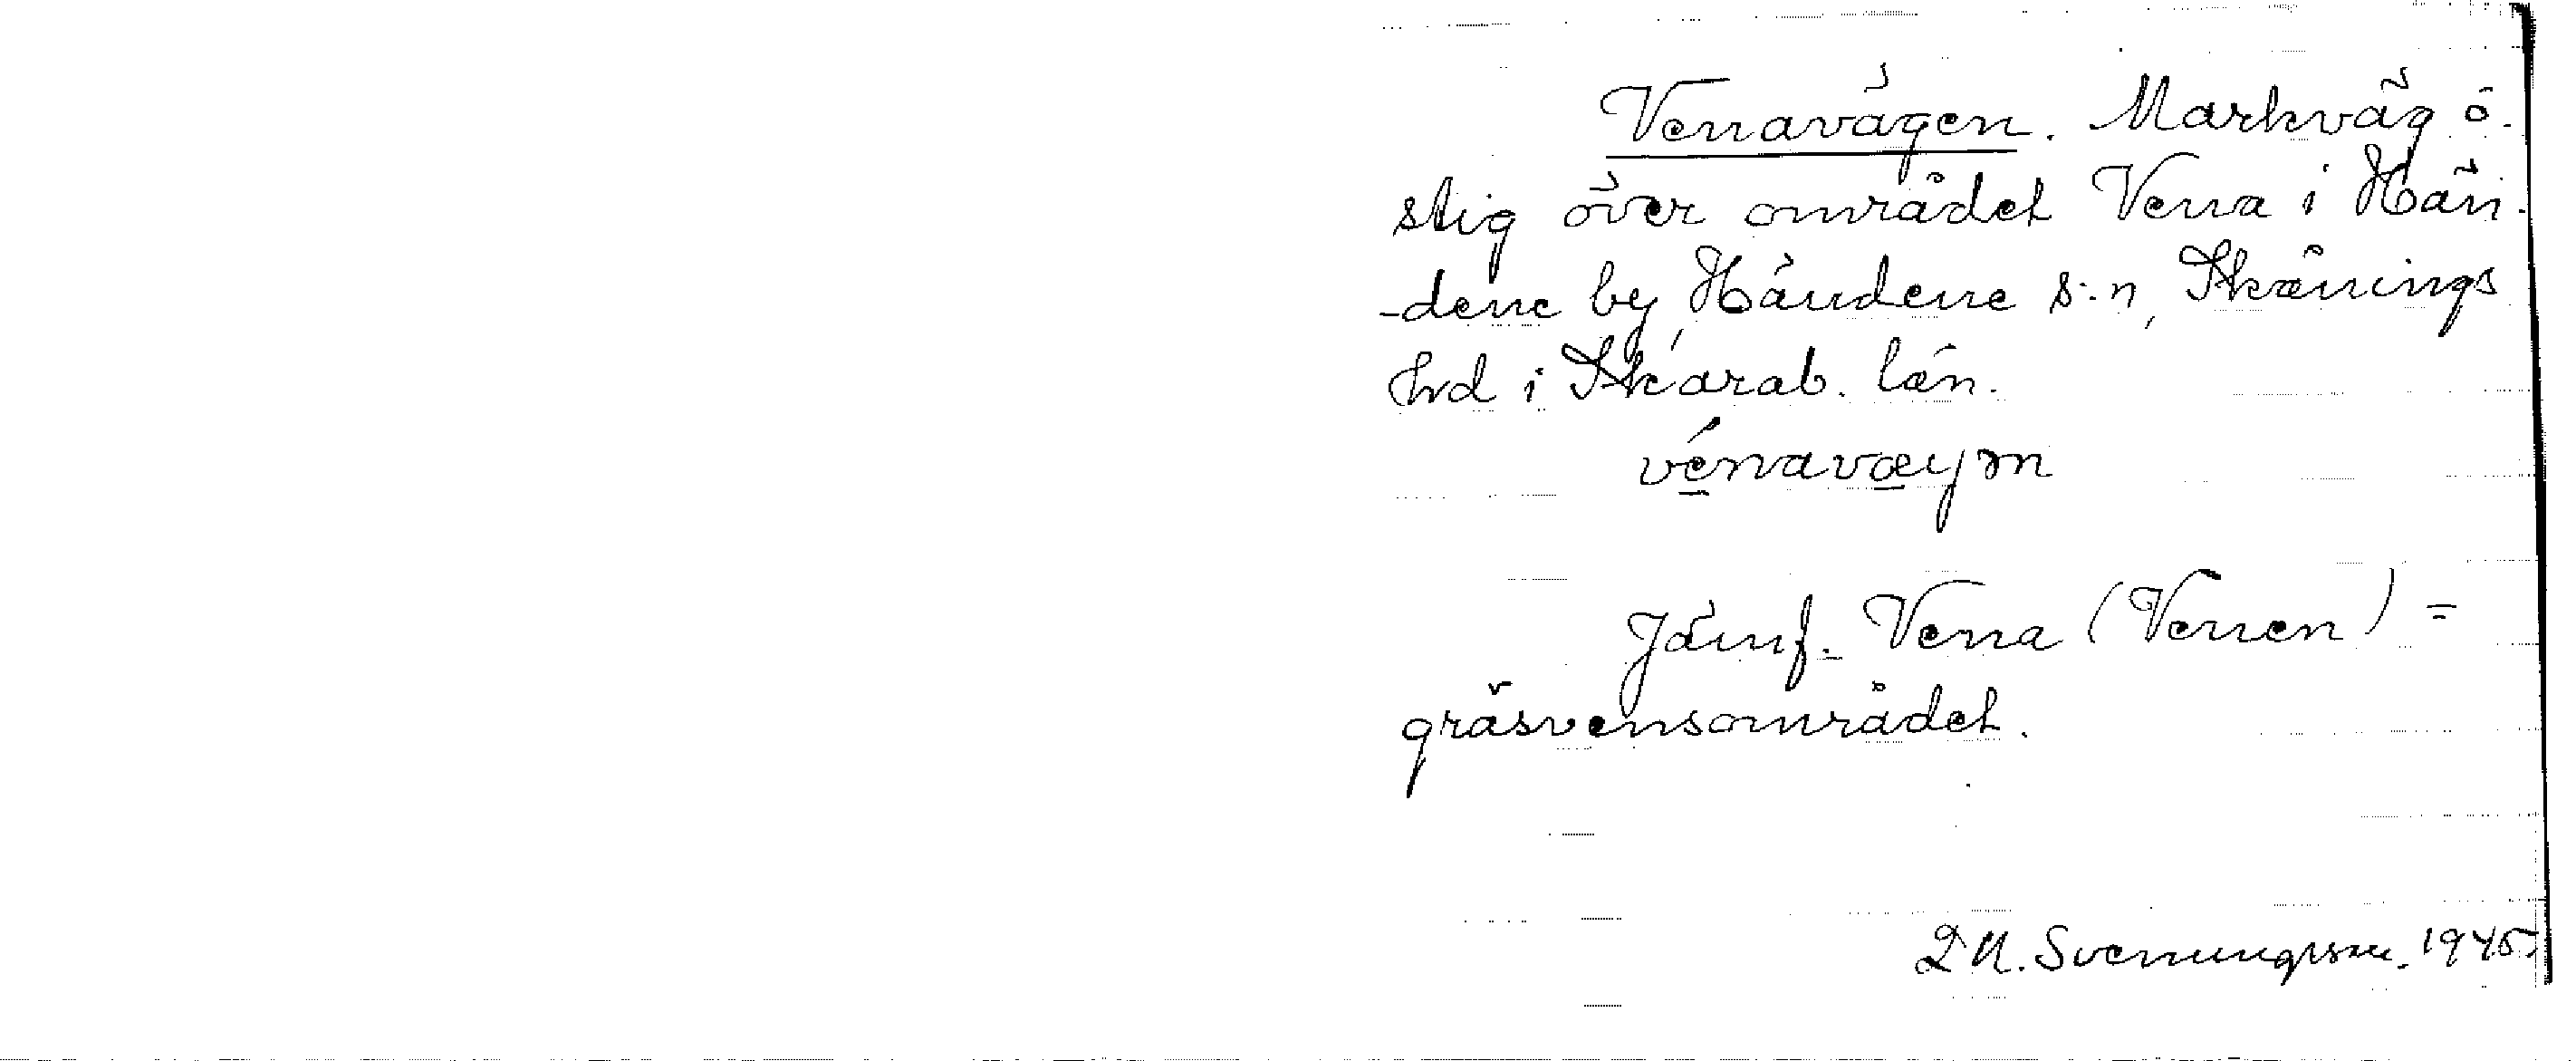 Venavägen. Markväg o.
stig över området Vena i Hän-
-dene by, Händene s:n, Skånings
hrd i Skarab. län.
vénavæγm
Jämf. Vena (Venen) =
gräsvensområdet.
D N. Svenungsson. 1945.